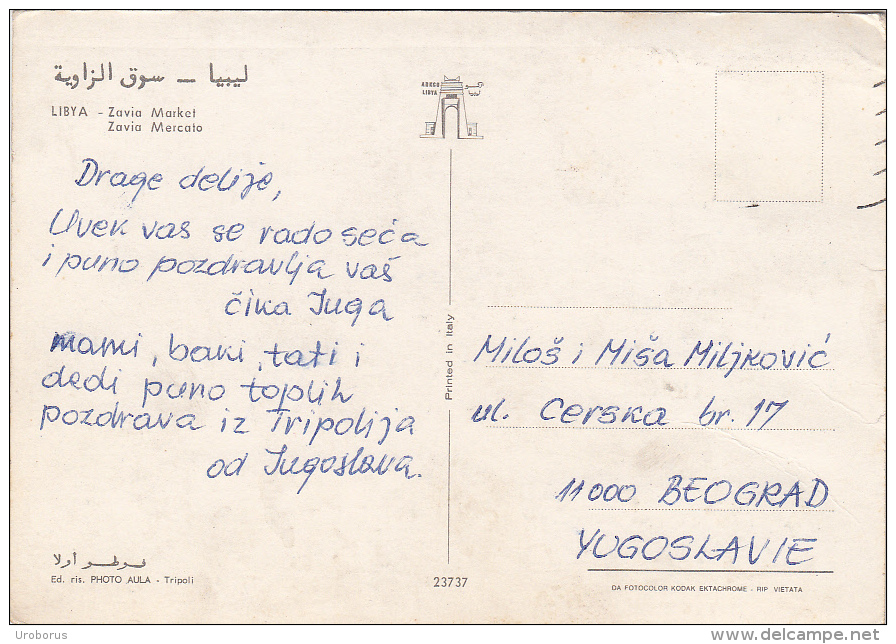 ليبيا – سوق الزاوية
LIBYA - Zavia Market
Zavia Mercato
ARKCO
LIBYA
ليبيا
Drage delije,
Uvek vas se rado seća
i puno pozdravlja vaš
čika Juga
mami, baki, tati i
dedi puno toplih
pozdrava iz Tripolija
od Jugoslava.
Printed in Italy
Miloš i Miša Miljković
ul. Cerska br. 17
11000 BEOGRAD
YUGOSLAVIE
فوطو أولا
Ed. ris. PHOTO AULA - Tripoli
23737
DA FOTOCOLOR KODAK EKTACHROME - RIP VIETATA
Uroborus
delcampe.net